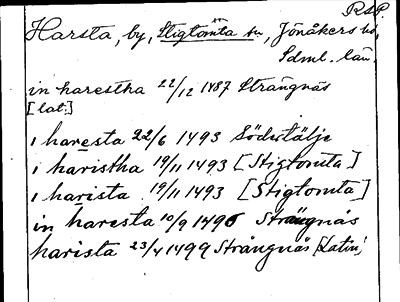 RSP.
Harsta, by, Stigtomta sn, Jönåkers hd,
Sdml. län
in harestha 22/12 1487 Strängnäs
[lat.]
i haresta 22/6 1493 Södertälje
i haristha 19/11 1493 [Stigtomta]
i harista 19/11 1493 [Stigtomta]
in haresta 10/9 1496 Strängnäs
harista 23/4 1499 Strängnäs [Latin]